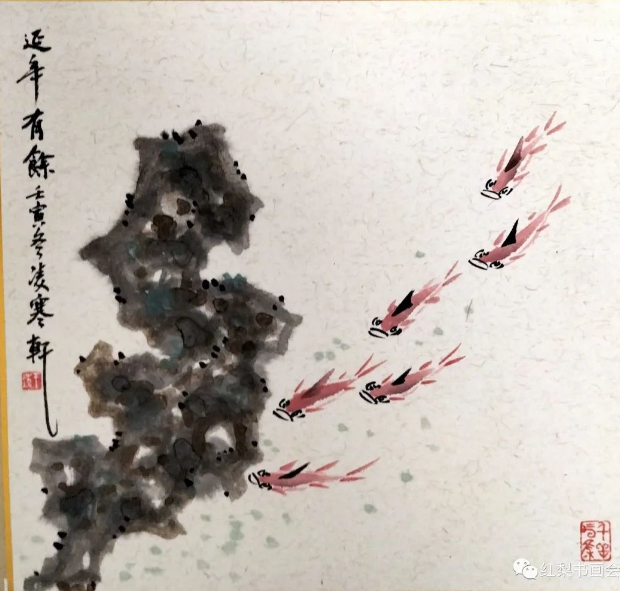 延年有餘
壬寅冬凌寒軒
红梨书画会